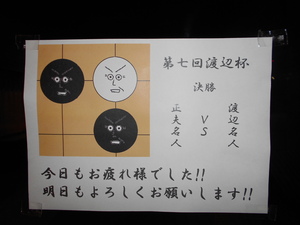 第七回渡辺杯
決勝
渡辺名人
VS
正夫名人
今日もお疲れ様でした!!
明日もよろしくお願いします!!